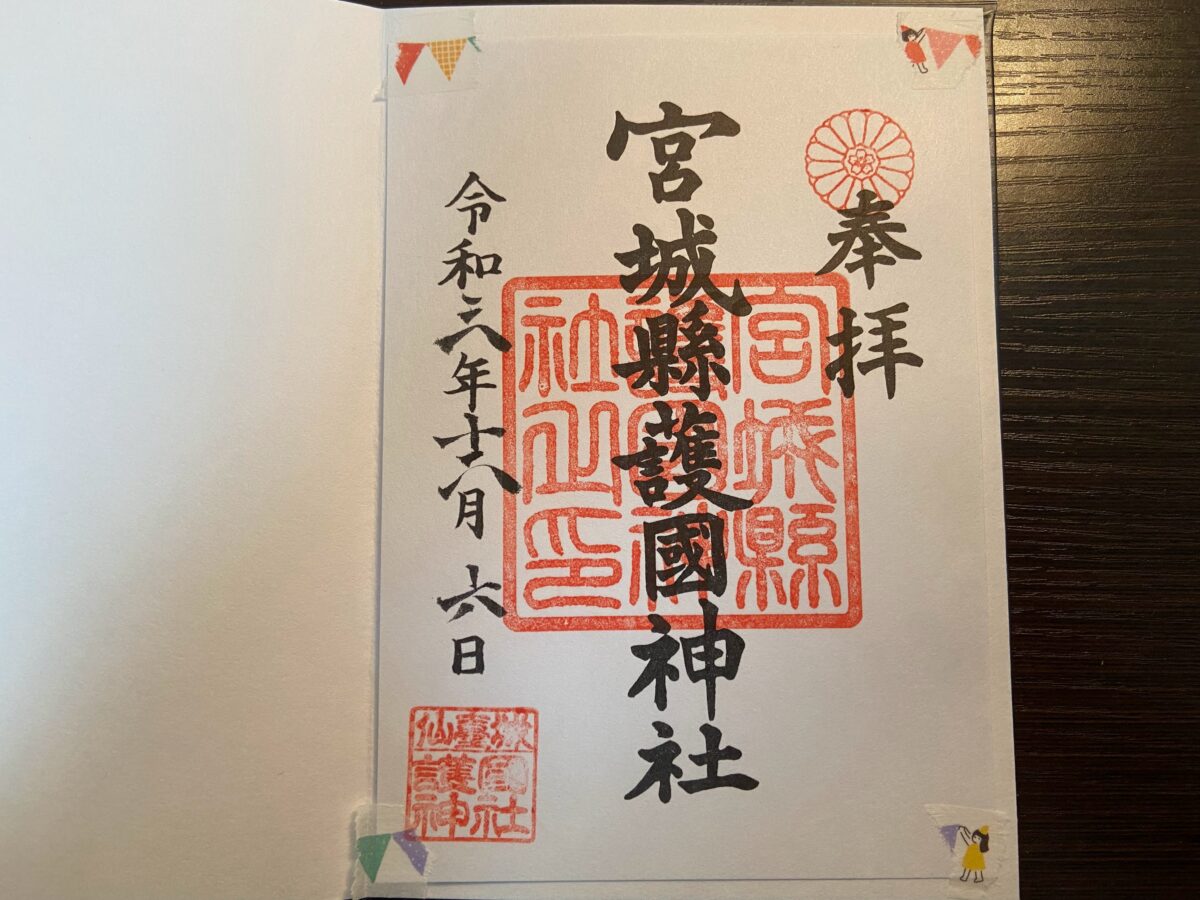 奉拝
宮城縣護國神社
宮城縣
護國神
社之印
令和年十月 六日
仙臺城
護國
神社